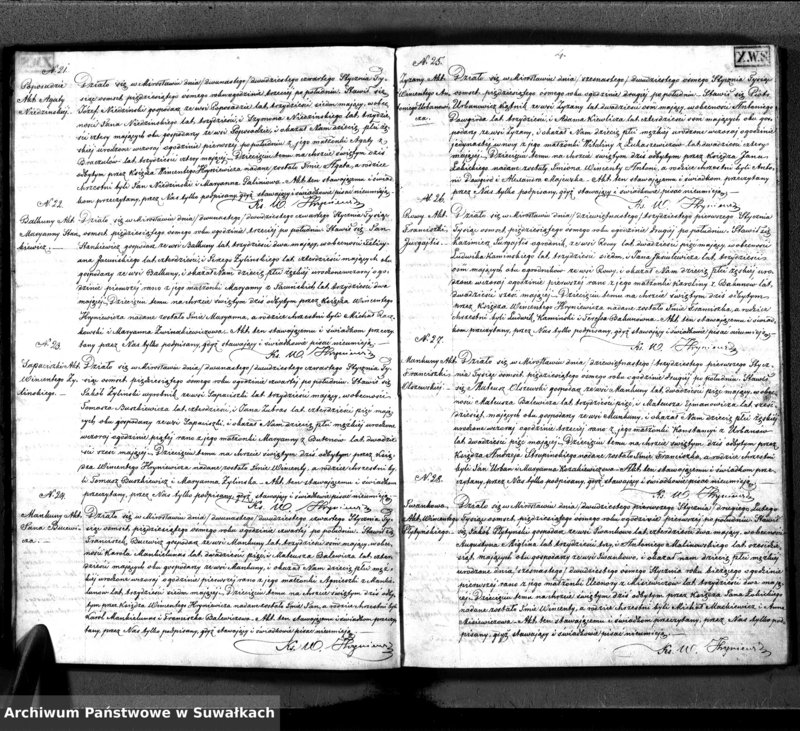 N. 21.
Poposadzie
Akt Agaty
Niedzinskiej.
Działo się w Mirosławiu dnia /dwunastego/ dwudziestego czwartego Stycznia Ty-
siąc osmset pięćdziesiątego osmego roku o godzinie trzeciej po południu. Stawił się
Józef Niedzinski gospodarz ze wsi Poposadzie lat trzydzieści siedm mający, wobec-
ności Jana Niedzinskiego lat trzydzieści, i Szymona Niedzinskiego lat trzydzie-
ści cztery mających obu gospodarzy ze wsi Poposadzie, i okazał Nam dziecię płci żeń-
skiej urodzone wczoraj o godzinie pierwszej po południu z jego małżonki Agaty z
lat trzydzieści cztery mającej. Dziecięciu temu na chrzcie świętym dziś
odbytym przez Księdza Wincentego Hryniewicza nadane zostało Imie Agata, a rodzice
chrzestni byli Jan Niedzinski i Maryanna Akt ten stawającemu i świad-
kom przeczytany, przez Nas tylko podpisany, gdyż stawający i świadkowie pisać nieumieją.
Ks. W. Hryniewicz
N. 22.
Balkuny Akt
Maryanny Stan-
kiewicz.
Działo się w Mirosławiu dnia /dwunastego/ dwudziestego czwartego Stycznia Tysiąc
osmset pięćdziesiątego osmego roku o godzinie trzeciej po południu. Stawił się
Stankiewicz gospodarz ze wsi Balkuny lat trzydzieści dwa mający, wobecności
lat czterdzieści, i Jerzego Zylinskiego lat czterdzieści mających obu
gospodarzy ze wsi Balkuny, i okazał Nam dziecię płci żeńskiej urodzone wczoraj o go-
dzinie pierwszej rano z jego małżonki Maryanny z lat trzydzieści dwa
mającej. Dziecięciu temu na chrzcie świętym dziś odbytym przez Księdza Wincentego
Hryniewicza nadane zostało Imie Maryanna, a rodzice chrzestni byli Michał
i Maryanna Akt ten stawającemu i świadkom przeczy-
tany przez Nas tylko podpisany, gdyż stawający i świadkowie pisać nieumieją.
Ks. W. Hryniewicz
N. 23.
Akt
Wincentego Zy-
linskiego.
Działo się w Mirosławiu dnia /dwunastego/ dwudziestego czwartego Stycznia Ty-
siąc osmset pięćdziesiątego osmego roku o godzinie czwartej po południu. Stawił się
Jakób Zylinski wyrobnik ze wsi lat trzydzieści pięć mający, wobecności
Tomasza Buszkiewicza lat czterdzieści, i Jana lat czterdzieści pięć mają-
cych obu gospodarzy ze wsi i okazał Nam dziecię płci męzkiej urodzone
wczoraj o godzinie piątej rano z jego małżonki Maryanny z lat dwadzie-
ścia sześć mającej. Dziecięciu temu na chrzcie świętym dziś odbytym przez Księ-
dza Wincentego Hryniewicza nadane zostało Imie Wincenty, a rodzice chrzestni by-
li Tomasz Buszkiewicz i Maryanna Zylinska. Akt ten stawającemu i świadkom
przeczytany, przez Nas tylko podpisany, gdyż stawający i świadkowie pisać nieumieją.
Ks. W. Hryniewicz
N. 24.
Mankuny Akt
Jana Bucewi-
cza.
Działo się w Mirosławiu dnia /dwunastego/ dwudziestego czwartego Stycznia Ty-
siąc osmset pięćdziesiątego osmego roku o godzinie czwartej po południu. Stawił się
Franciszek Bucewicz gospodarz ze wsi Mankuny lat trzydzieści osm mający, wobec-
ności Karola Mankielunas lat dwadzieścia pięć, i Mateusza Balewicza lat czter-
dzieści mających obu gospodarzy ze wsi Mankuny, i okazał Nam dziecię płci męz-
kiej urodzone wczoraj o godzinie pierwszej rano z jego małżonki Agnieszki z Mankie-
lunow lat trzydzieści siedm mającej. Dziecięciu temu na chrzcie świętym dziś odby-
tym przez Księdza Wincentego Hryniewicza nadane zostało Imie Jan, a rodzice chrzestni byli
Karol Mankielunas i Franciszka Balewiczowa. Akt ten stawającemu i świadkom przeczy-
tany, przez Nas tylko podpisany, gdyż stawający i świadkowie pisać nieumieją.
Ks. W. Hryniewicz
N. 25.
Zyzany Akt
Wincentego An-
toniego Urbanowi-
cza.
Działo się w Mirosławiu dnia /szesnastego/ dwudziestego osmego Stycznia Tysiąc
osmset pięćdziesiątego osmego roku o godzinie drugiej po południu. Stawił się Piotr
Urbanowicz kątnik ze wsi Zyzany lat dwadzieścia osm mający, wobecności Antoniego
lat trzydzieści, i Adama lat trzydzieści osm mających obu gos-
podarzy ze wsi Zyzany, i okazał Nam dziecię płci męzkiej urodzone wczoraj o godzinie
jedynastej w nocy z jego małżonki Wiktoryi z Łukaszewiczow lat dwadzieścia cztery
mającej. Dziecięciu temu na chrzcie świętym dziś odbytym przez Księdza Jana
nadane zostały Imiona Wincenty Antoni, a rodzice chrzestni byli Anto-
ni i Akt ten stawającemu i świadkom przeczytany
przez Nas tylko podpisany, gdyż stawający i świadkowie pisać nieumieją.
Ks. W. Hryniewicz
N. 26.
Rowy Akt
Franciszki
Działo się w Mirosławiu dnia /dziewiętnastego/ trzydziestego pierwszego Stycznia
Tysiąc osmset pięćdziesiątego osmego roku o godzinie drugiej po południu. Stawił się
Kazimierz ogrodnik ze wsi Rowy lat dwadzieścia pięć mający, wobecności
Ludwika Kaminskiego lat trzydzieści siedm, i Jana lat trzydzieści
osm mających obu ogrodnikow ze wsi Rowy, i okazał Nam dziecię płci żeńskiej uro-
dzone wczoraj o godzinie pierwszej rano z jego małżonki Karoliny z lat
dwadzieścia sześć mającej. Dziecięciu temu na chrzcie świętym dziś odbytym
przez Księdza Wincentego Hryniewicza nadane zostało Imie Franciszka, a rodzice
chrzestni byli Ludwik Kaminski i Teresa Akt ten stawającemu i świad-
kom przeczytany, przez Nas tylko podpisany, gdyż stawający i świadkowie pisać nieumieją.
Ks. W. Hryniewicz
N. 27.
Mankuny Akt
Franciszki
Olszewskiej.
Działo się w Mirosławiu dnia /dziewiętnastego/ trzydziestego pierwszego Stycz-
nia Tysiąc osmset pięćdziesiątego osmego roku o godzinie drugiej po południu. Stawił
się Mateusz Olszewski gospodarz ze wsi Mankuny lat dwadzieścia pięć mający, wobec-
ności Mateusza Balewicza lat trzydzieści, i Mateusza lat sześć-
dziesiąt mających obu gospodarzy ze wsi Mankuny, i okazał Nam dziecię płci żeńskiej
urodzone wczoraj o godzinie trzeciej rano z jego małżonki Konstancyi z Urbanow
lat dwadzieścia pięć mającej. Dziecięciu temu na chrzcie świętym dziś odbytym przez
Księdza Andrzeja nadane zostało Imie Franciszka, a rodzice chrzestni
byli Jan Urban i Maryanna Akt ten stawającemu i świadkom prze-
czytany, przez Nas tylko podpisany, gdyż stawający i świadkowie pisać nieumieją.
Ks. W. Hryniewicz
N. 28.
Iwankowa.
Akt Wincentego
Działo się w Mirosławiu dnia /dwudziestego pierwszego Stycznia/ drugiego Lutego
Tysiąc osmset pięćdziesiątego osmego roku o godzinie pierwszej po południu. Stawił
się Jakób gospodarz ze wsi Iwankowa lat czterdzieści dwa mający, wobecności
Augustyna lat trzydzieści trzy, i Antoniego Malinowskiego lat
mających obu gospodarzy ze wsi Iwankowa, i okazał nam dziecię płci męzkiej
urodzone dnia /szesnastego/ dwudziestego osmego Stycznia roku bieżącego o godzinie
pierwszej rano z jego małżonki Eleonory z Misiewiczow lat trzydzieści dwa ma-
jącej. Dziecięciu temu na chrzcie świętym dziś odbytym przez Księdza Jana
nadane zostało Imie Wincenty, a rodzice chrzestni byli Michał Mackiewicz i Anna
Misiewiczowa. Akt ten stawającemu i świadkom przeczytany, przez Nas tylko pod-
pisany, gdyż stawający i świadkowie pisać nieumieją.
Ks. W. Hryniewicz
Archiwum Państwowe w Suwałkach